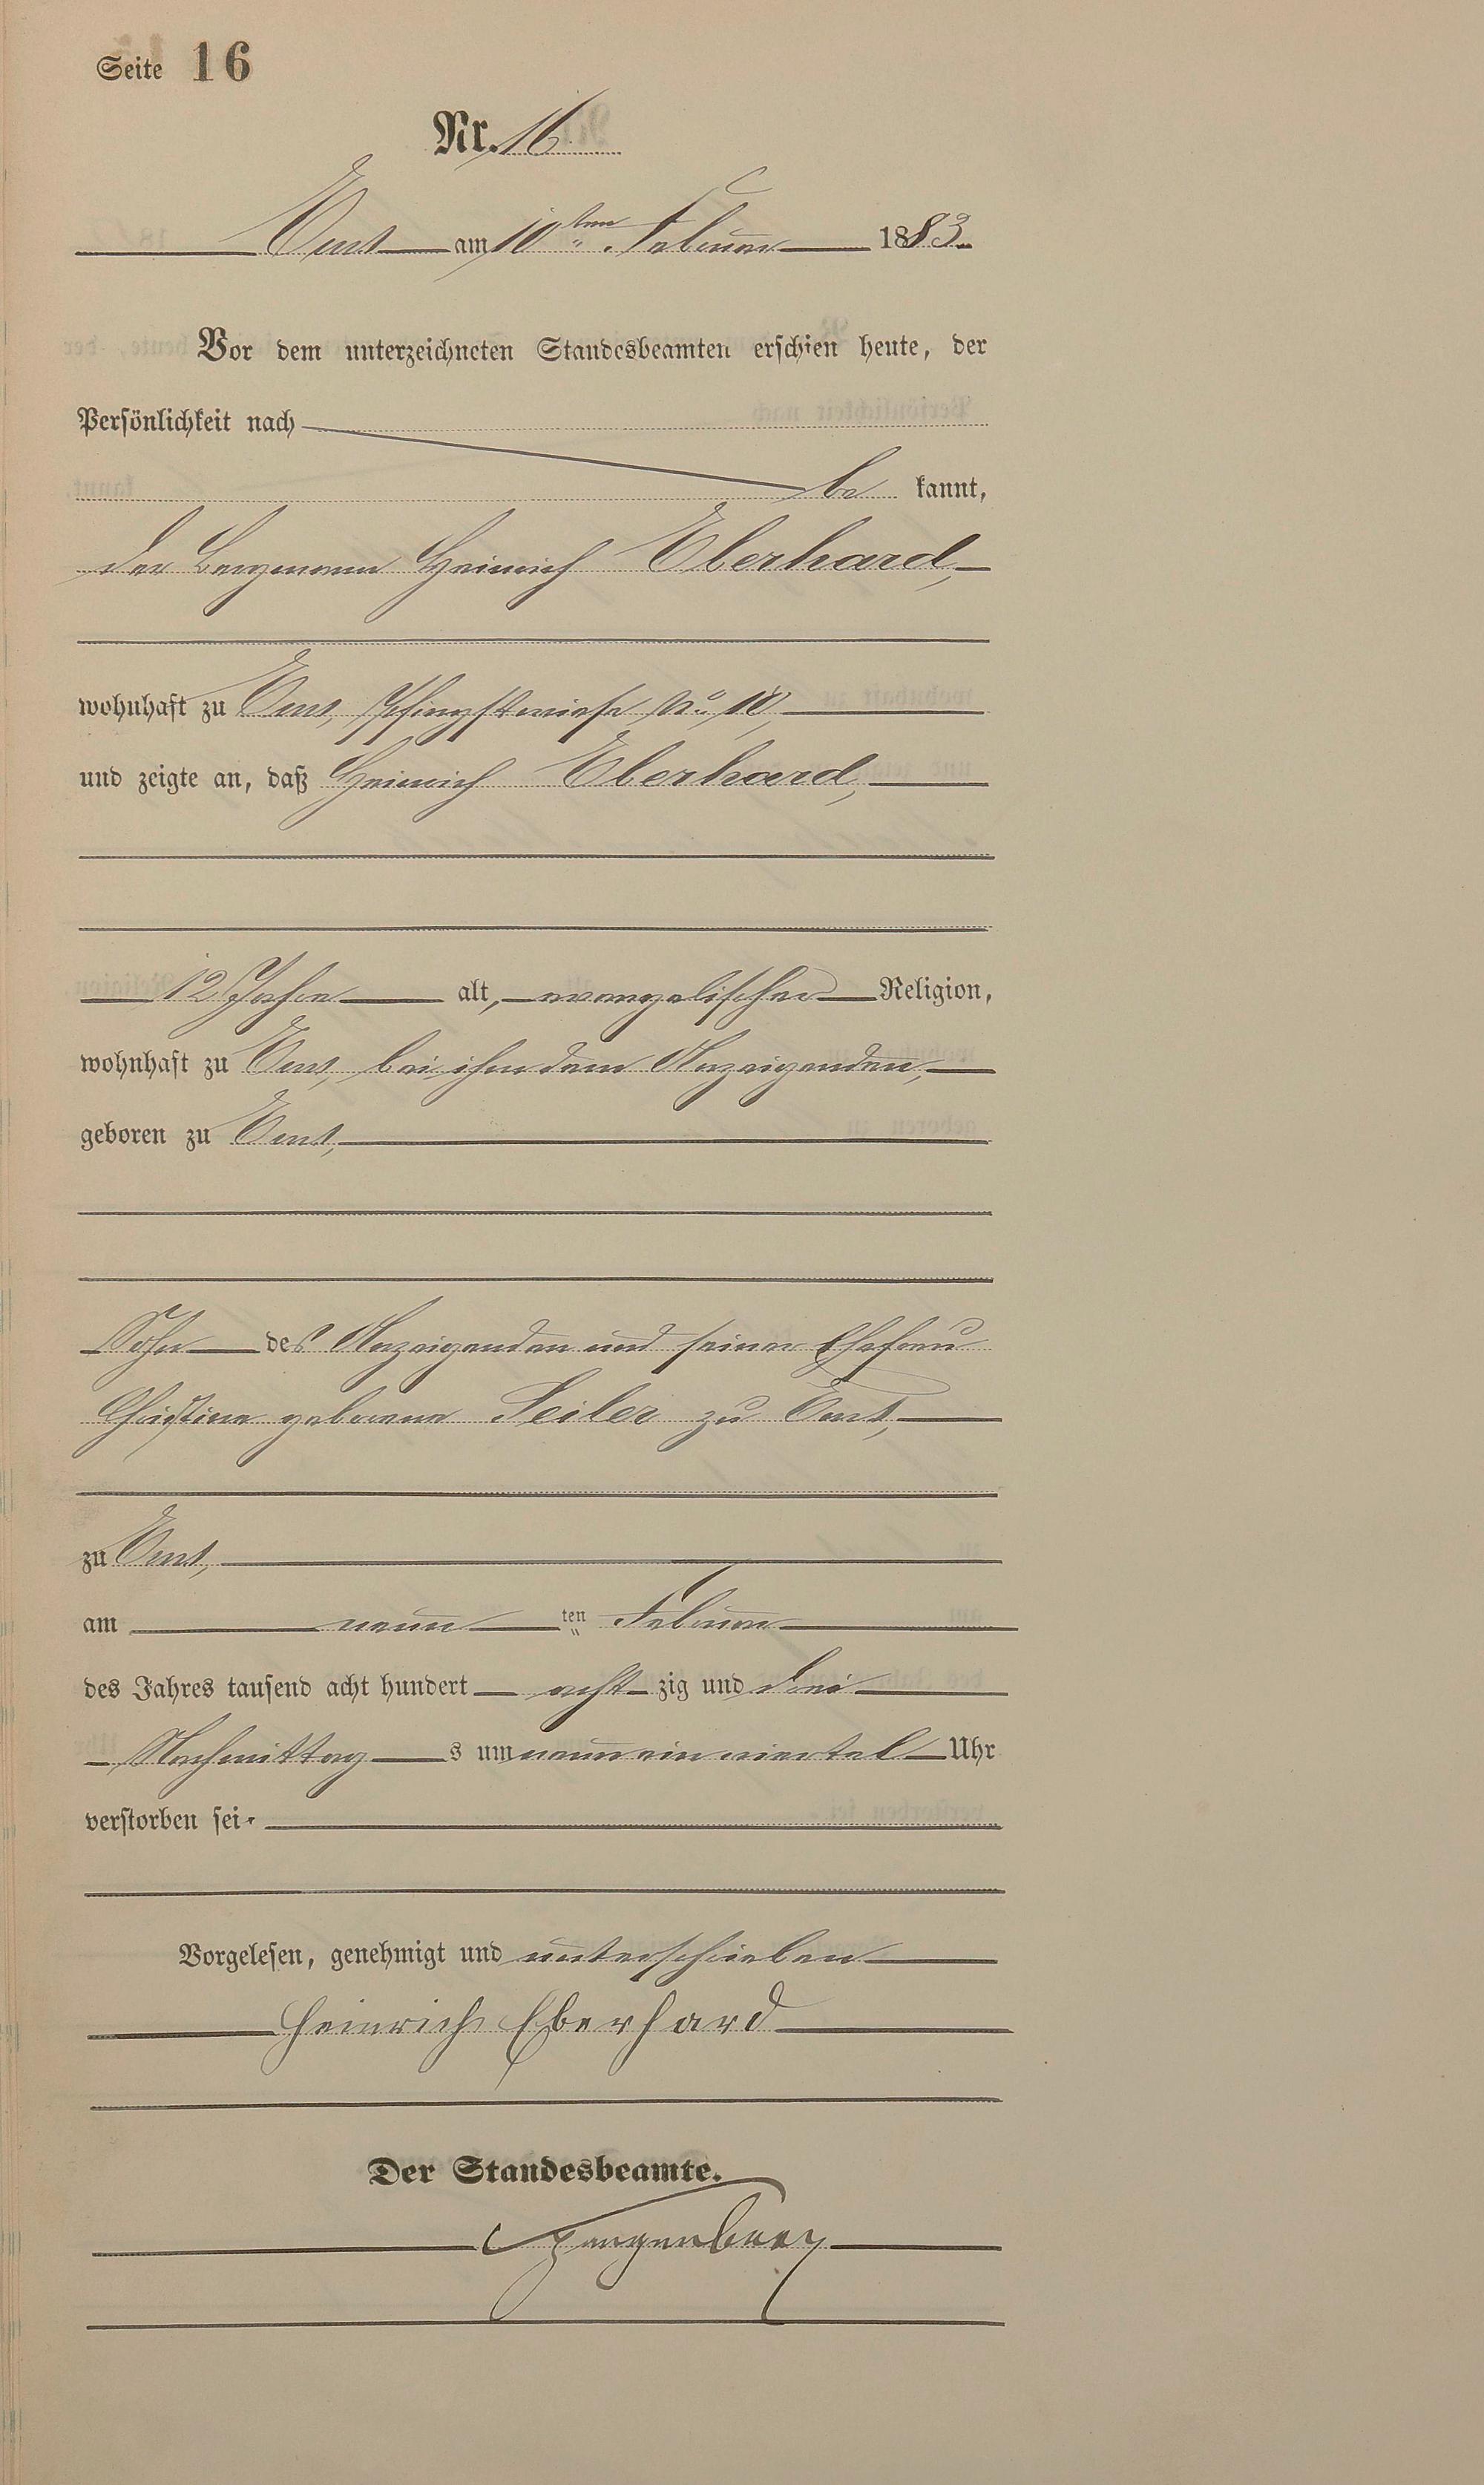 Seite 16
Nr. 16
Ems am 10ten Februar 1883.
Vor dem unterzeichneten Standesbeamten erschien heute, der
Persönlichkeit nach
be kannt,
der Bergmann Heinrich Eberhard,
wohnhaft zu Ems, Pfingstwiese No. 10,
und zeigte an, daß Heinrich Eberhard,
12 Jahre alt, evangelischer Religion,
wohnhaft zu Ems, bei ihm dem Anzeigenden,
geboren zu Ems,
Sohn des Anzeigenden und seiner Ehefrau
Christine geborene Seiler zu Ems,
zu Ems,
am neun ten Februar
des Jahres tausend acht hundert acht zig und drei
Nachmittag s um neun ein viertel Uhr
verstorben sei.
Vorgelesen, genehmigt und unterschrieben
Heinrich Eberhard
Der Standesbeamte.